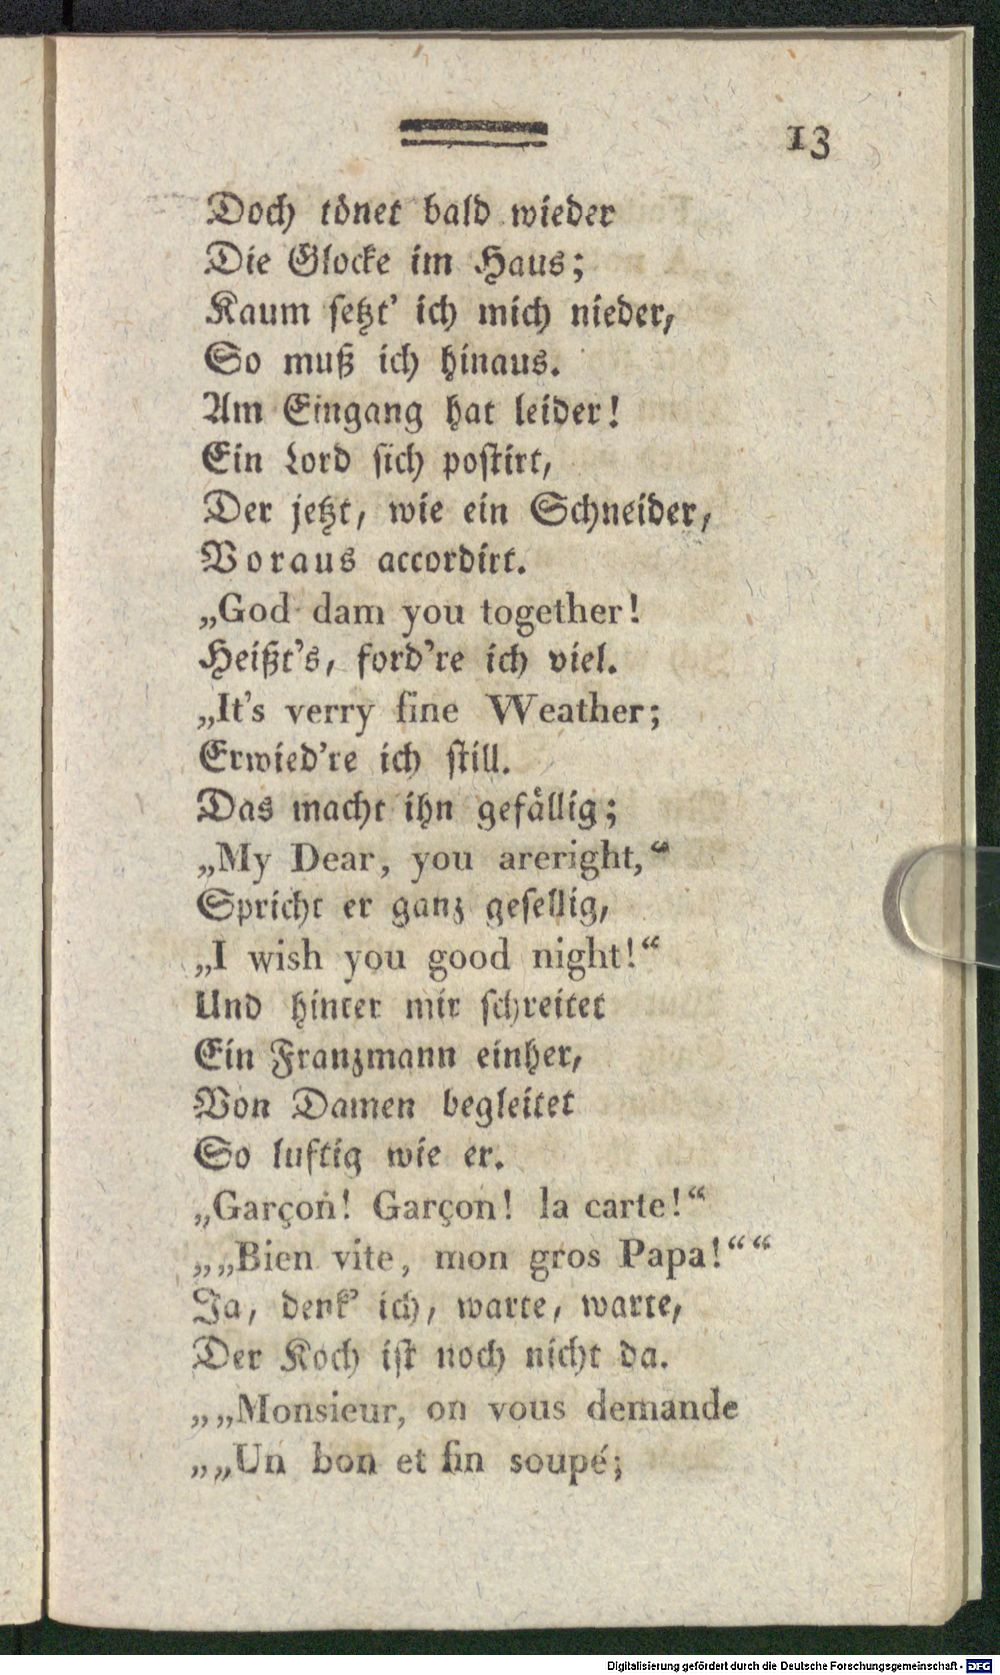 13
Doch tönet bald wieder
Die Glocke im Haus;
Kaum setzt' ich mich nieder,
So muß ich hinaus.
Am Eingang hat leider!
Ein Lord sich postirt,
Der jetzt, wie ein Schneider,
Voraus accordirt.
„God dam you together!
Heißt's, ford're ich viel.
„It's verry fine Weather;
Erwied're ich still.
Das macht ihn gefällig;
„My Dear, you areright,“
Spricht er ganz gesellig,
„I wish you good night!“
Und hinter mir schreitet
Ein Franzmann einher,
Von Damen begleitet
So luftig wie er.
„Garçon! Garçon! la carte!“
„„Bien vite, mon gros Papa!““
Ja, denk' ich, warte, warte,
Der Koch ist noch nicht da.
„„Monsieur, on vous demande
„„Un bon et fin soupé;
Digitalisierung gefördert durch die Deutsche Forschungsgemeinschaft - DFG